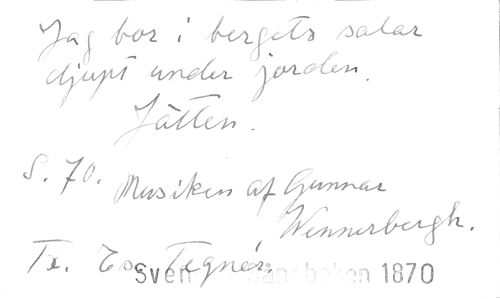 Jag bor i bergets salar
djupt under jorden.
Jätten.
S. 70. Musiken af Gunnar
Wennerbergh.
Tx. Es. Tegnér.
Sven sångboken 1870